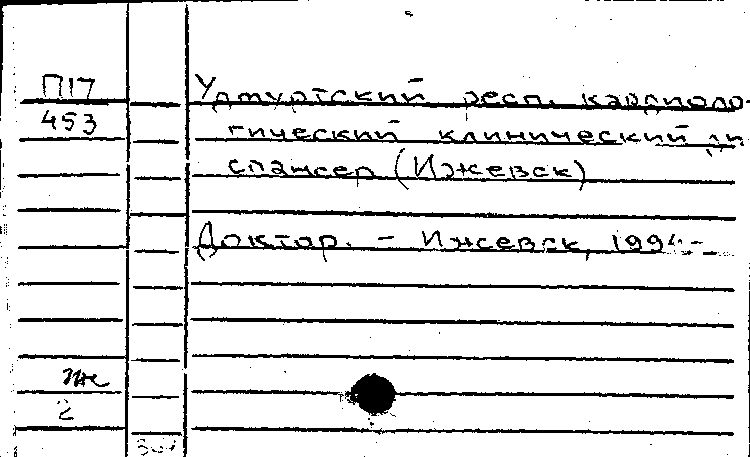 П17
453
Удмуртский респ. кардиоло-
гический клинический ди
спансер (Ижевск)
Доктор. - Ижевск, 1994.-
2